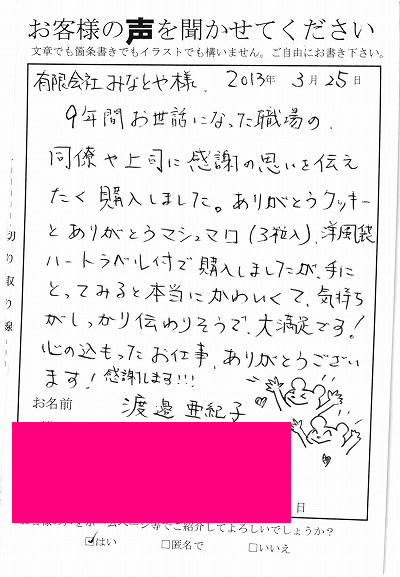 お客様の声を聞かせてください
文章でも箇条書きでもイラストでも構いません。ご自由にお書き下さい。
有限会社 みなとや様. 2013年 3月 25日
9年間お世話になった職場の、
同僚や上司に感謝の思いを伝え
たく購入しました。ありがとうクッキー
とありがとうマシュマロ(3粒入)、洋風袋
ハートラベル付で購入しましたが、手に
とってみると本当にかわいくて、気持ち
がしっかり伝わりそうで、大満足です!
心の込もったお仕事、ありがとうござい
ます! 感謝します!!!
切り取り線
お名前 渡邉 亜紀子
日
ホームページ等でご紹介してよろしいでしょうか?
はい 匿名で いいえ